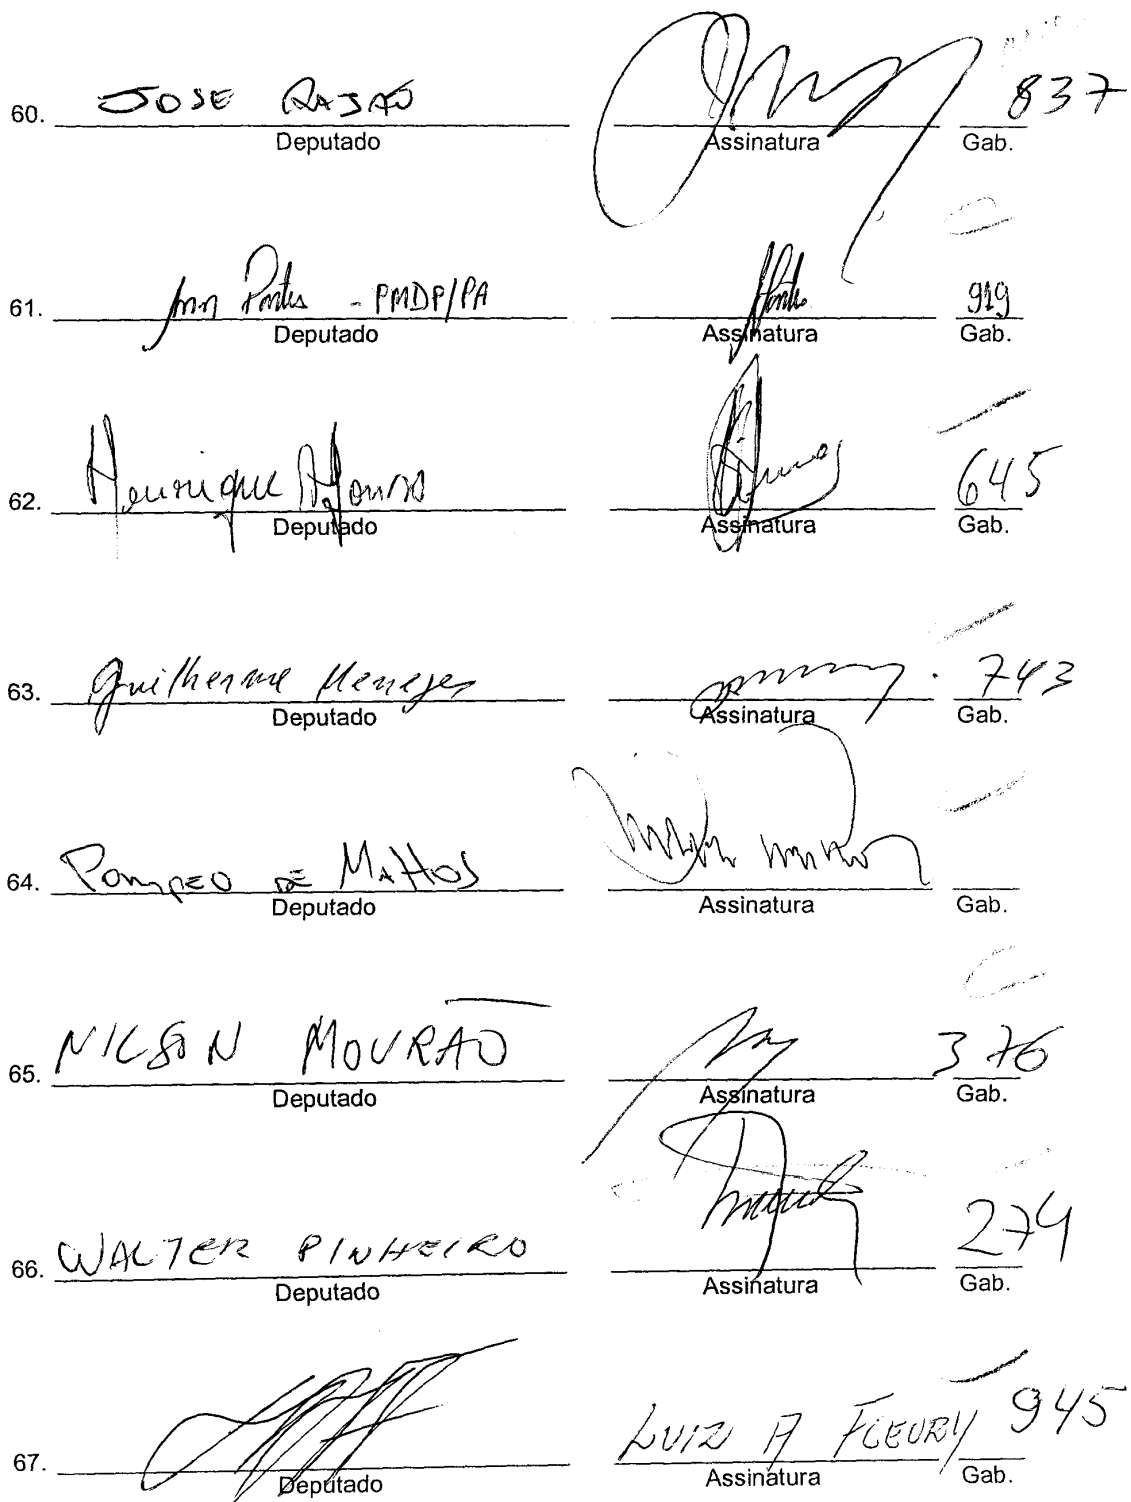 60. JOSE RAJÃO 837
Deputado Assinatura Gab.
61. Pontes - PMDP/PA 919
Deputado Assinatura Gab.
62. Henrique Afonso 645
Deputado Assinatura Gab.
63. Guilherme Menezes 743
Deputado Assinatura Gab.
64. POMPEO DE MATTOS
Deputado Assinatura Gab.
65. NILSON MOURÃO 376
Deputado Assinatura Gab.
66. WALTER PINHEIRO 274
Deputado Assinatura Gab.
67. LUIZ A FLEURY 945
Deputado Assinatura Gab.